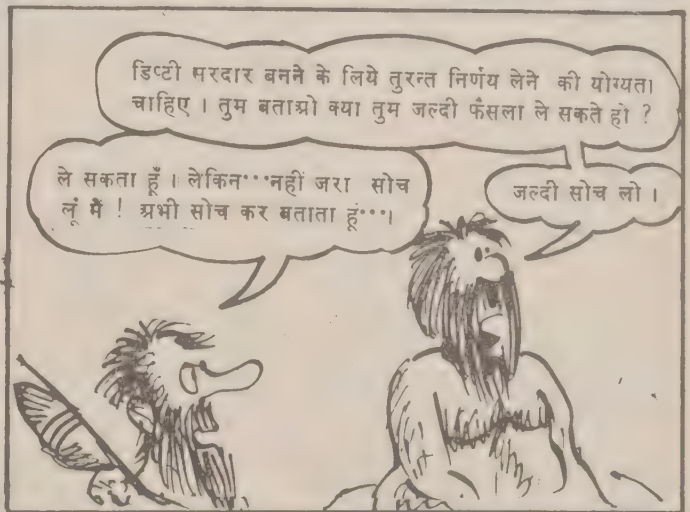 डिप्टी सरदार बनने के लिये तुरन्त निर्णय लेने की योग्यता
चाहिए । तुम बताओ क्या तुम जल्दी फैसला ले सकते हो ?
ले सकता हूँ । लेकिन···नहीं जरा सोच
लूं मैं ! अभी सोच कर बताता हूं···।
जल्दी सोच लो ।